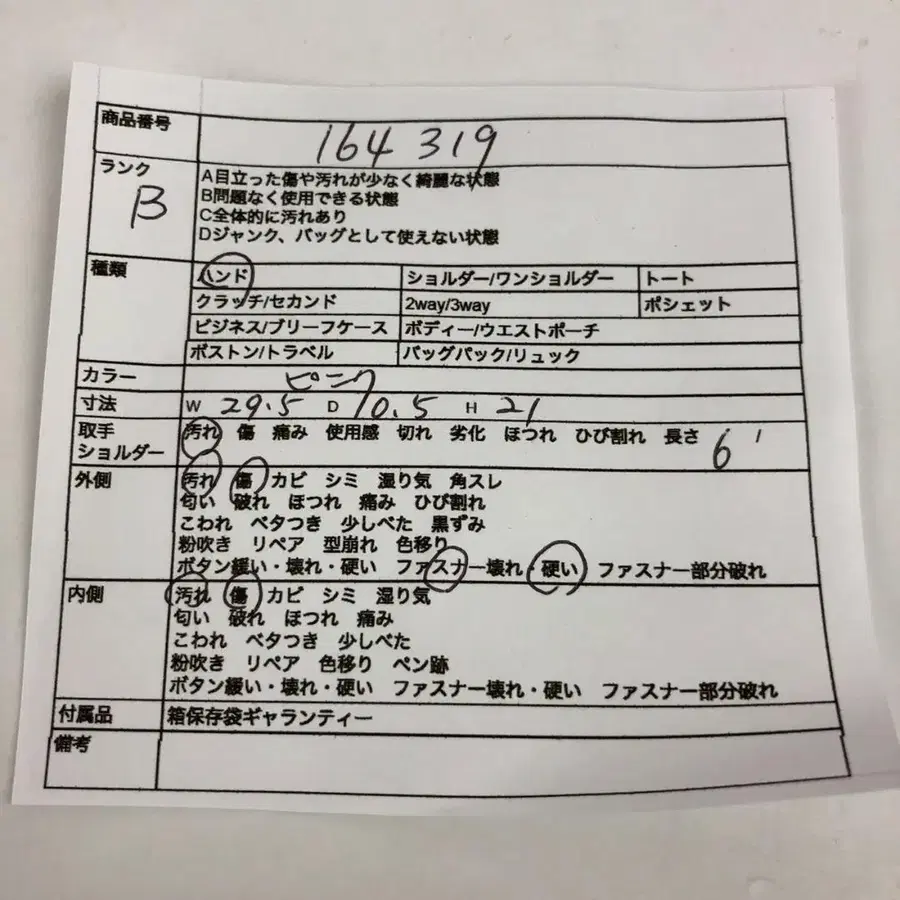 商品番号 164 319
ランク B
A目立った傷や汚れが少なく綺麗な状態
B問題なく使用できる状態
C全体的に汚れあり
Dジャンク、バッグとして使えない状態
種類 ハンド ショルダー/ワンショルダー トート
クラッチ/セカンド 2way/3way ポシェット
ビジネス/ブリーフケース ボディー/ウエストポーチ
ボストン/トラベル バッグパック/リュック
カラー ピンク
寸法 W 29.5 D 10.5 H 21
取手 汚れ 傷 痛み 使用感 切れ 劣化 ほつれ ひび割れ 長さ 6
ショルダー
外側 汚れ 傷 カビ シミ 湿り気 角スレ
匂い 破れ ほつれ 痛み ひび割れ
こわれ ベタつき 少しべた 黒ずみ
粉吹き リペア 型崩れ 色移り
ボタン緩い・壊れ・硬い ファスナー壊れ・硬い ファスナー部分破れ
内側 汚れ 傷 カビ シミ 湿り気
匂い 破れ ほつれ 痛み
こわれ ベタつき 少しべた
粉吹き リペア 色移り ペン跡
ボタン緩い・壊れ・硬い ファスナー壊れ・硬い ファスナー部分破れ
付属品 箱保存袋ギャランティー
備考